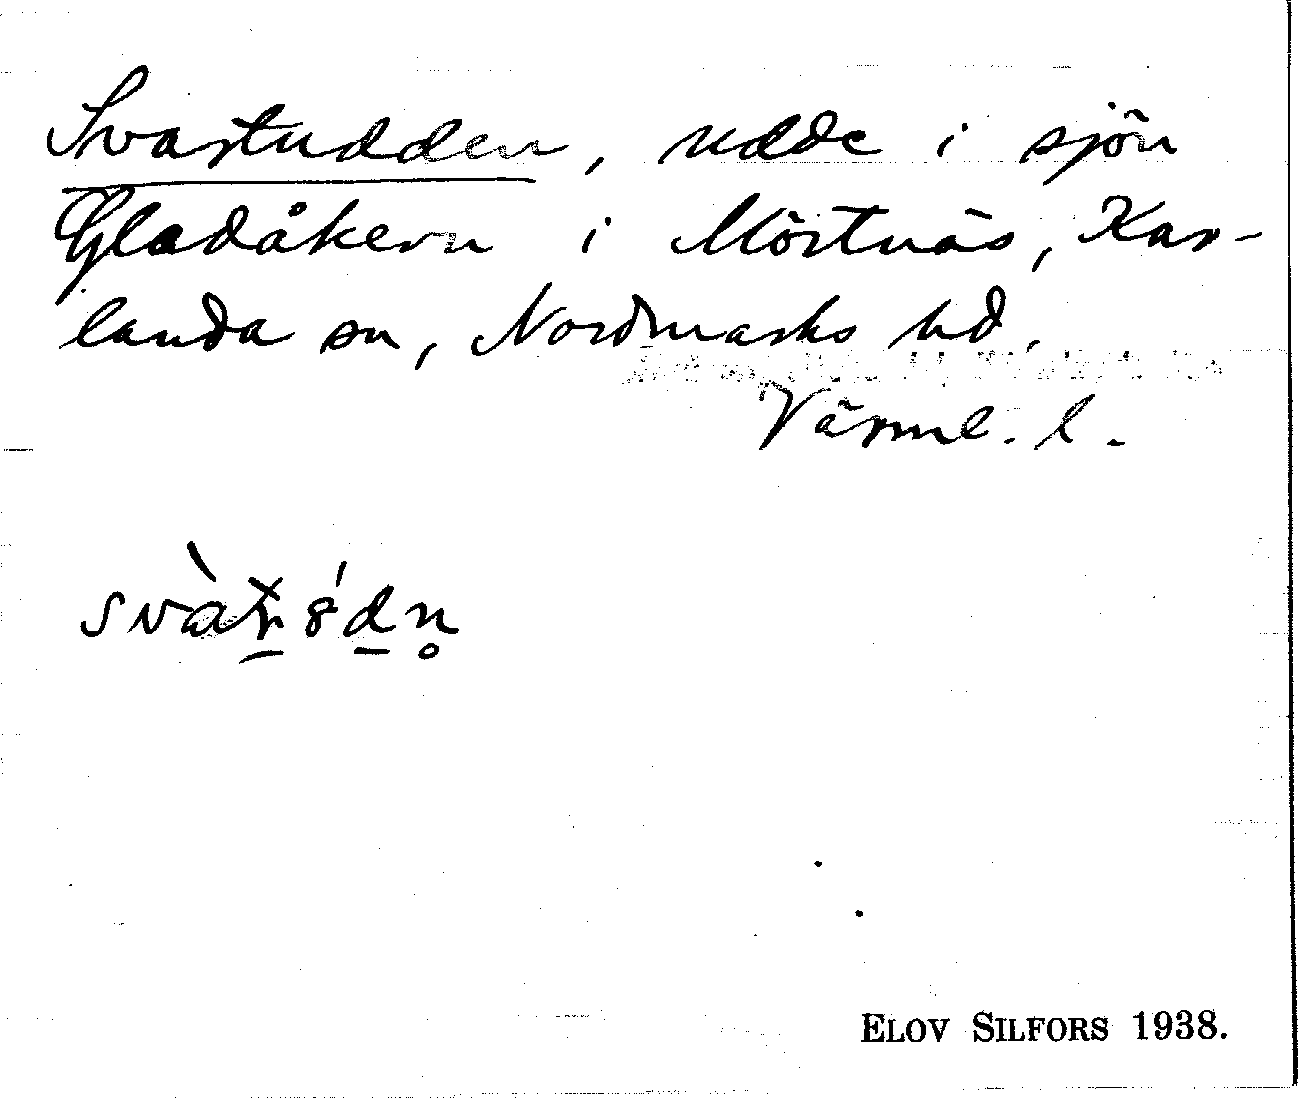 Svartudden, udde i sjön
Gladåkern i Mörtnäs, Kar-
landa sn, Nordmarks hd,
Värml. l.
ELOV SILFORS 1938.